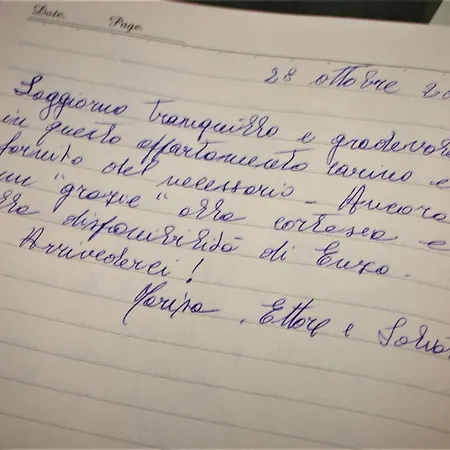 Date: Page:
28 ottobre 20
Soggiorno tranquillo e gradevole
in questo appartamento carino e
fornito del necessario - Ancora
un "grazie" alla cortesia e
alla disponibilità di Enzo.
Arrivederci!
Marisa, Ettore e